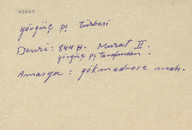 yörgüç pş Türbesi
Devri: 844 H. Murat II.
yörgüç pş tarafından
Amasya: gökmedrese mah.